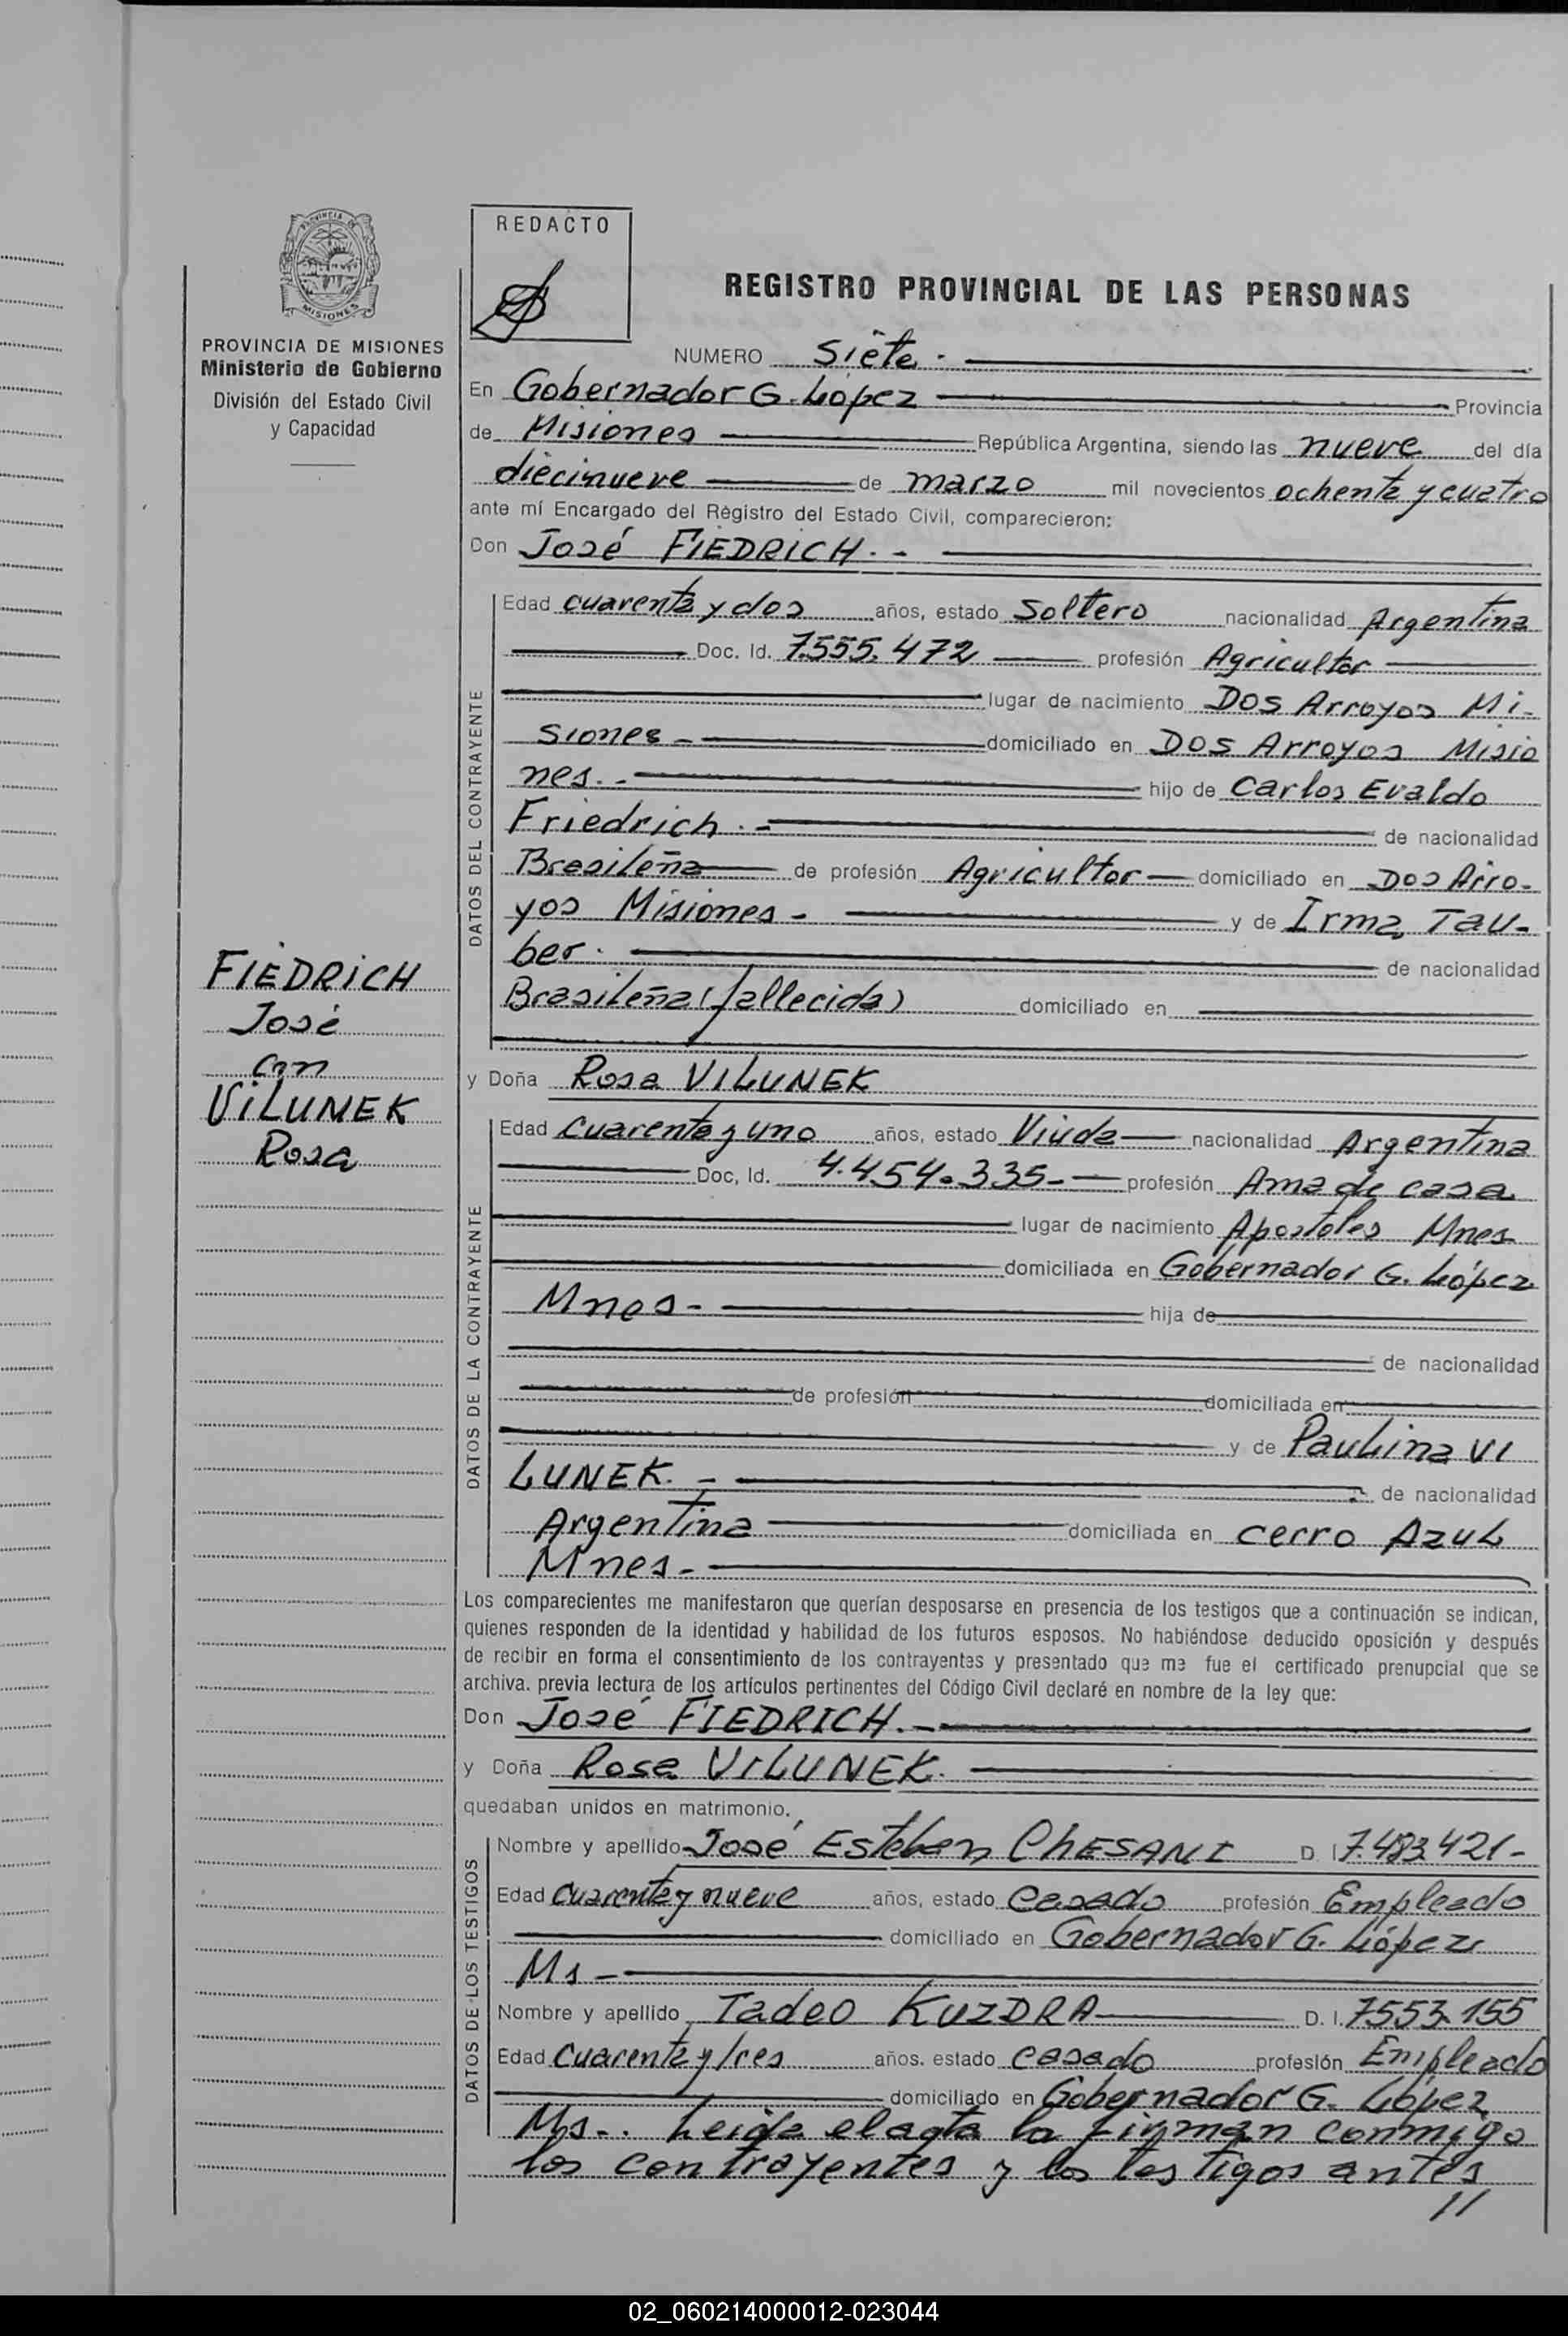 REDACTO
REGISTRO PROVINCIAL DE LAS PERSONAS
PROVINCIA DE MISIONES
Ministerio de Gobierno
División del Estado Civil
y Capacidad
FIEDRICH
José
con
VILUNEK
Rosa
NUMERO Siete.
En Gobernador G. López Provincia
de Misiones República Argentina, siendo las nueve del día
diecinueve de marzo mil novecientos ochenta y cuatro
ante mí Encargado del Registro del Estado Civil, comparecieron:
Don José FIEDRICH.-
DATOS DEL CONTRAYENTE
Edad cuarenta y dos años, estado Soltero nacionalidad Argentina
Doc. Id. 7.555.472 profesión Agricultor
lugar de nacimiento Dos Arroyos Mi-
siones- domiciliado en Dos Arroyos Misio
nes.- hijo de Carlos Evaldo
Friedrich.- de nacionalidad
Brasileña de profesión Agricultor domiciliado en Dos Arro-
yos Misiones- y de Irma Tau-
ber. de nacionalidad
Brasileña (fallecida) domiciliado en
y Doña Rosa VILUNEK
DATOS DE LA CONTRAYENTE
Edad Cuarenta y uno años, estado Viuda nacionalidad Argentina
Doc, Id. 4.454.335- profesión Ama de casa
lugar de nacimiento Apostoles Mnes
domiciliada en Gobernador G. López
Mnes- hija de
de nacionalidad
de profesión domiciliada en
y de Paulina VI
LUNEK.- de nacionalidad
Argentina domiciliada en Cerro Azul
Mnes-
Los comparecientes me manifestaron que querían desposarse en presencia de los testigos que a continuación se indican,
quienes responden de la identidad y habilidad de los futuros esposos. No habiéndose deducido oposición y después
de recibir en forma el consentimiento de los contrayentes y presentado que me fue el certificado prenupcial que se
archiva. previa lectura de los artículos pertinentes del Código Civil declaré en nombre de la ley que:
Don José FIEDRICH.-
y Doña Rosa VILUNEK.
quedaban unidos en matrimonio.
DATOS DE LOS TESTIGOS
Nombre y apellido José Esteban ChESANI D. I. 7.483.421-
Edad Cuarenta y nueve años, estado Casado profesión Empleado
domiciliado en Gobernador G. López
Ms-
Nombre y apellido Tadeo KUZDRA D. I. 7553.155
Edad Cuarenta y tres años. estado casado profesión Empleado
domiciliado en Gobernador G. López
Ms-. Leida el acta la firman conmigo
los contrayentes y los testigos antes
//
02_060214000012-023044